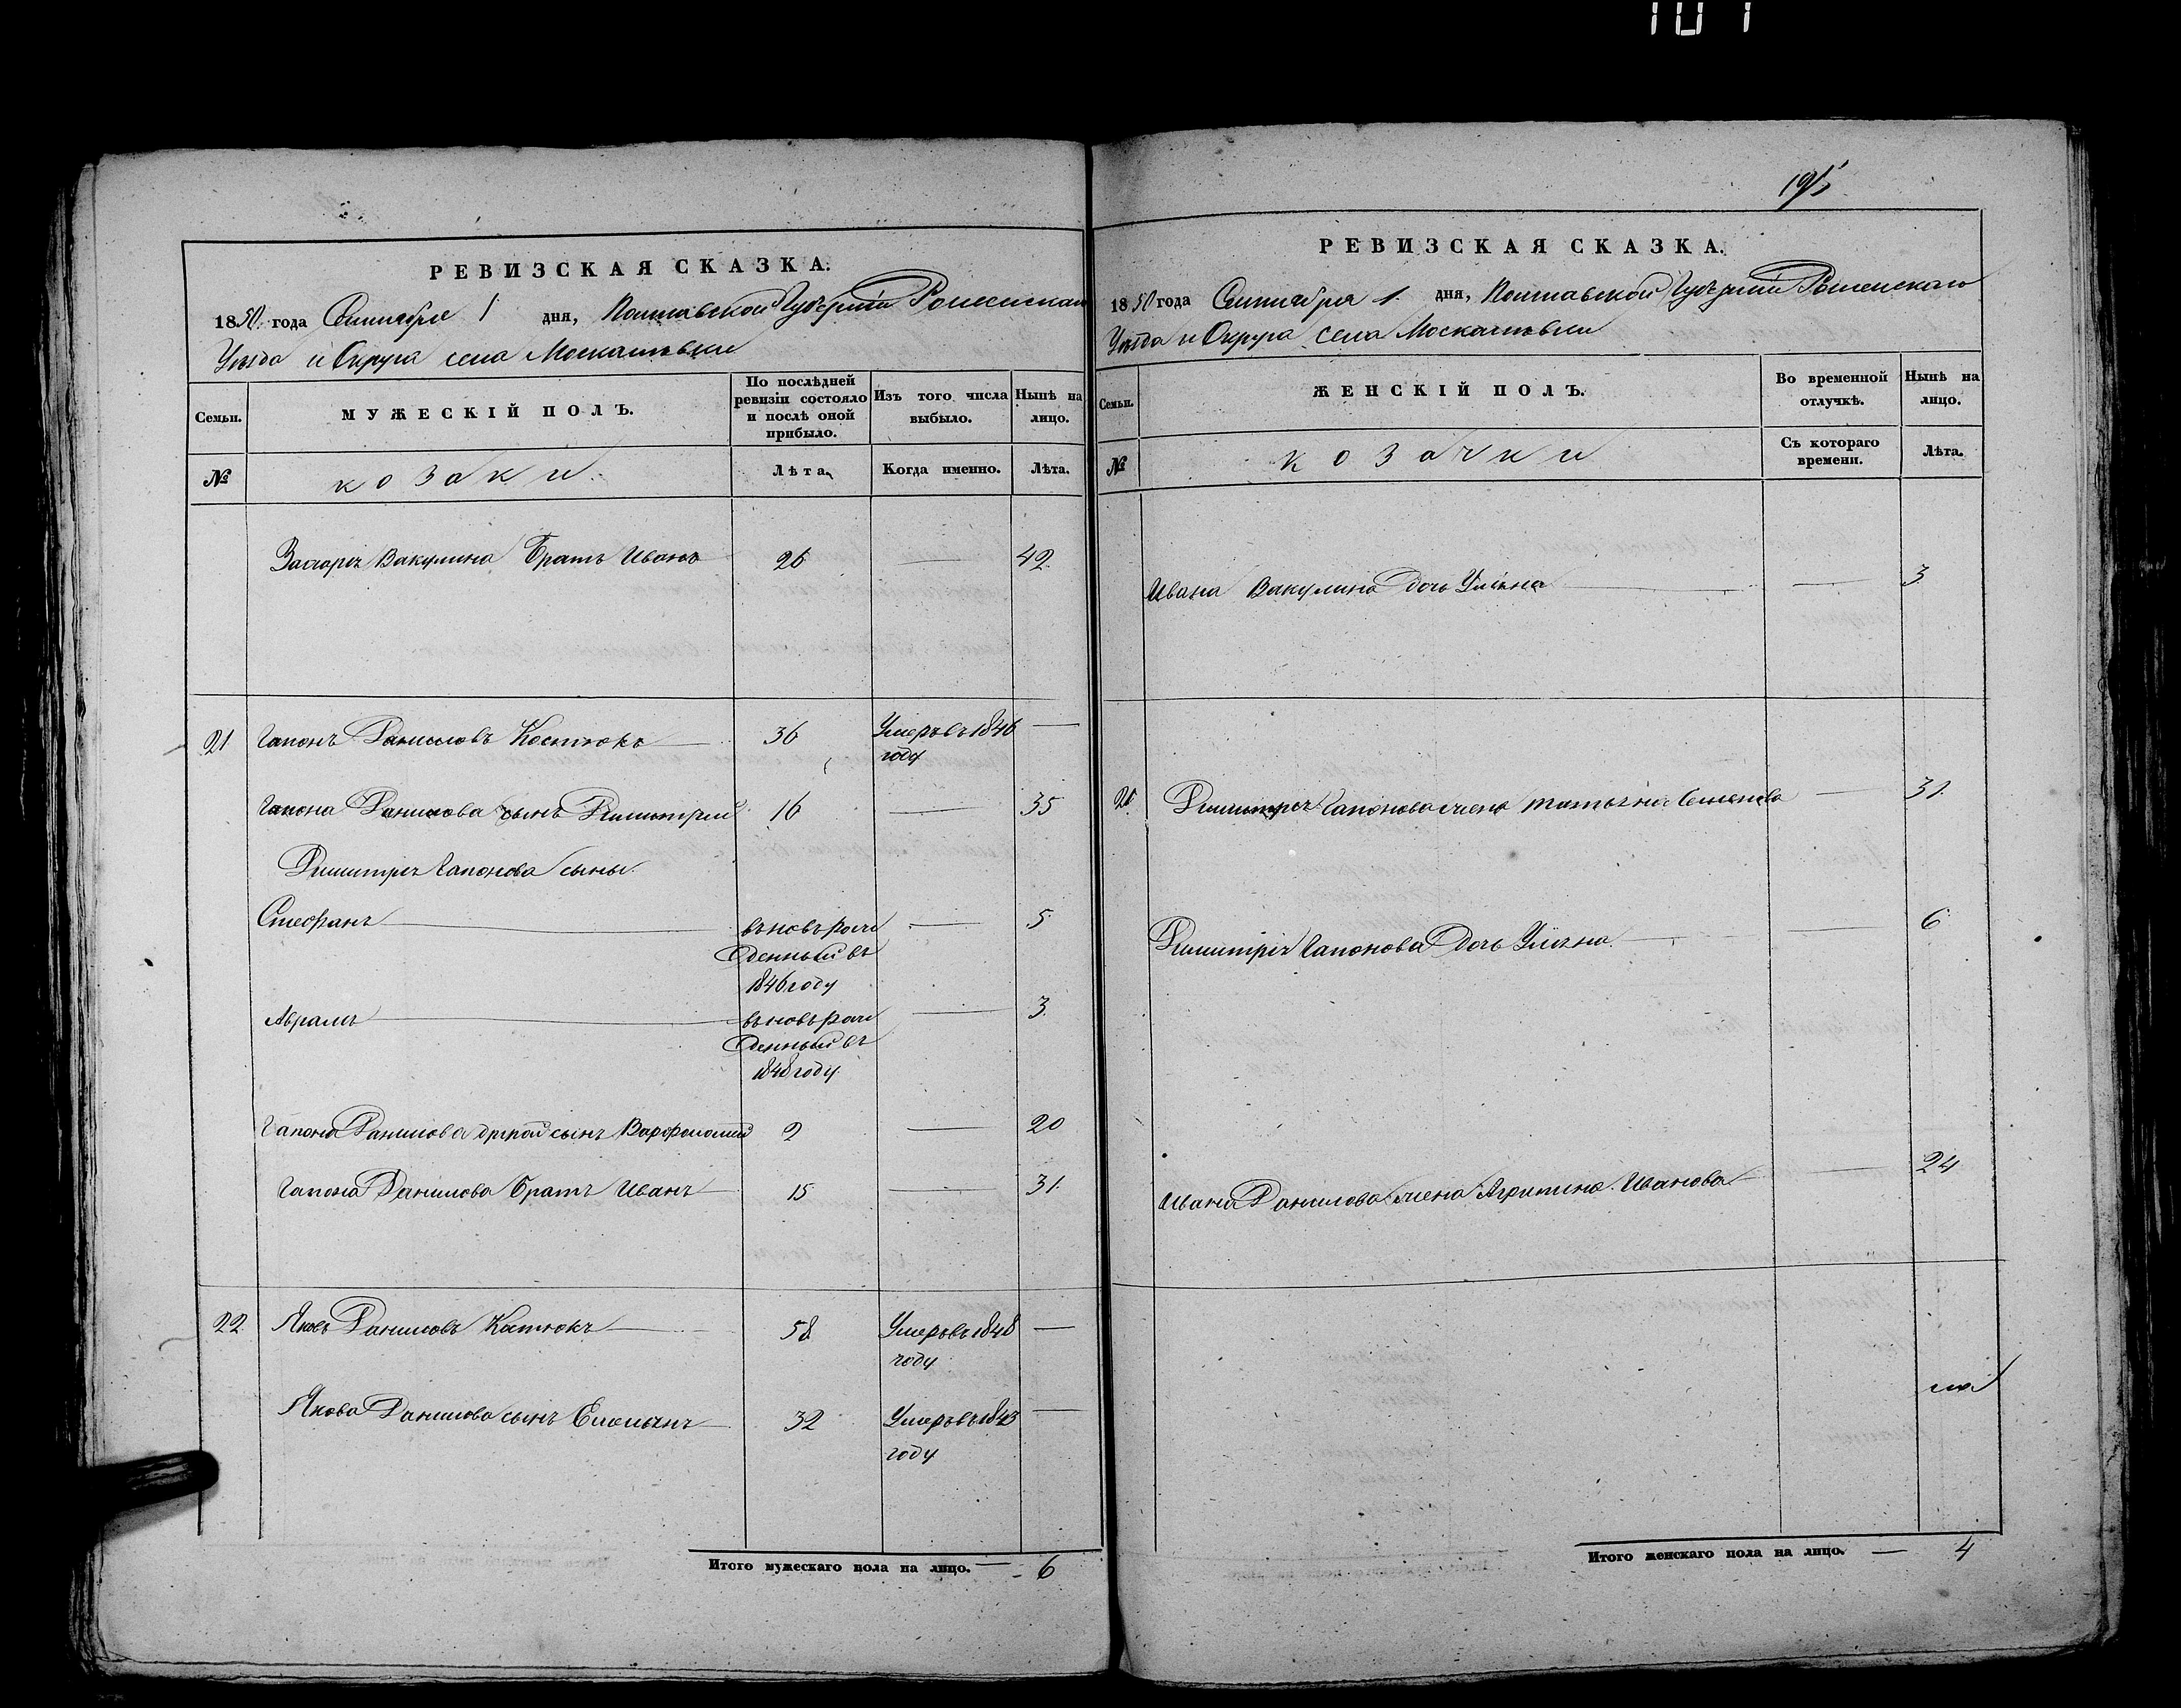 101
РЕВИЗСКАЯ СКАЗКА.
1850. года Сентября 1 дня, Полтавской Губерніи Роменскаго
Уѣзда и Округа села Москалювки
Семьи.
МУЖЕСКІЙ ПОЛЪ.
По послѣдней ревизіи состояло и послѣ оной прибыло.
Изъ того числа выбыло.
Нынѣ на лицо.
№
козаки.
Лѣта.
Когда именно.
Лѣта.
Захарія Вакулина Братъ Иванъ 26 — 42.
21 Гапонъ Даниловъ Костюкъ 36 Умеръ въ 1846 —
году
Гапона Данилова сынъ Димитрий 16 — 35
Димитрія Гапонова сыны.
Стефанъ — 5
въновь рож
денный въ
1846 году
Аврамъ — 3.
въновь рож
денный въ
1848 году
Гапона Данилова другой сынъ Варфоломей 2 — 20
Гапона Данилова Братъ Иванъ 15 — 31.
22 Яковъ Даниловъ Костюкъ 58 Умеръ въ 1848 —
году
Якова Данилова сынъ Емельянъ 32 Умеръ въ 1843 —
году
Итого мужескаго пола на лицо. — 6
195
РЕВИЗСКАЯ СКАЗКА.
1850 года Сентября 1. дня, Полтавской Губерніи Роменскаго
Уѣзда и Округа села Москалювки
Семьи.
ЖЕНСКІЙ ПОЛЪ.
Во временной отлучкѣ.
Нынѣ на лицо.
№
козачки
Съ котораго времени.
Лѣта.
Ивана Вакулина дочь Уліяна — 3
21 Димитрія Гапонова жена Татіяна Семенова — 31.
Димитрія Гапонова Дочь Уліяна. — 6
Ивана Данилова жена Агрипина Иванова — 24
Итого женскаго пола на лицо. — 4